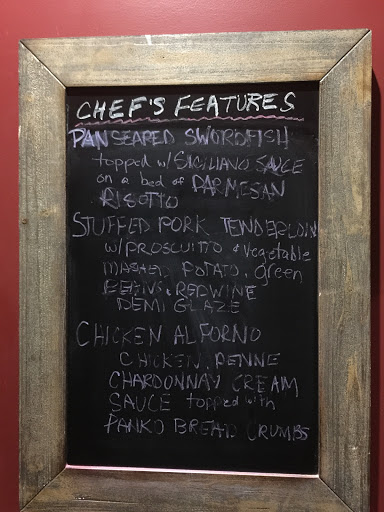 CHEF'S FEATURES
PAN SEARED SWORDFISH
topped w/ SICILIANO SAUCE
on a bed of PARMESAN
RISOTTO
STUFFED PORK TENDERLOIN
w/ PROSCUITTO & vegetable
MASHED POTATO, green
BEANS & REDWINE
DEMI GLAZE
CHICKEN ALFORNO
CHICKEN, PENNE
CHARDONNAY CREAM
SAUCE topped with
PANKO BREAD CRUMBS